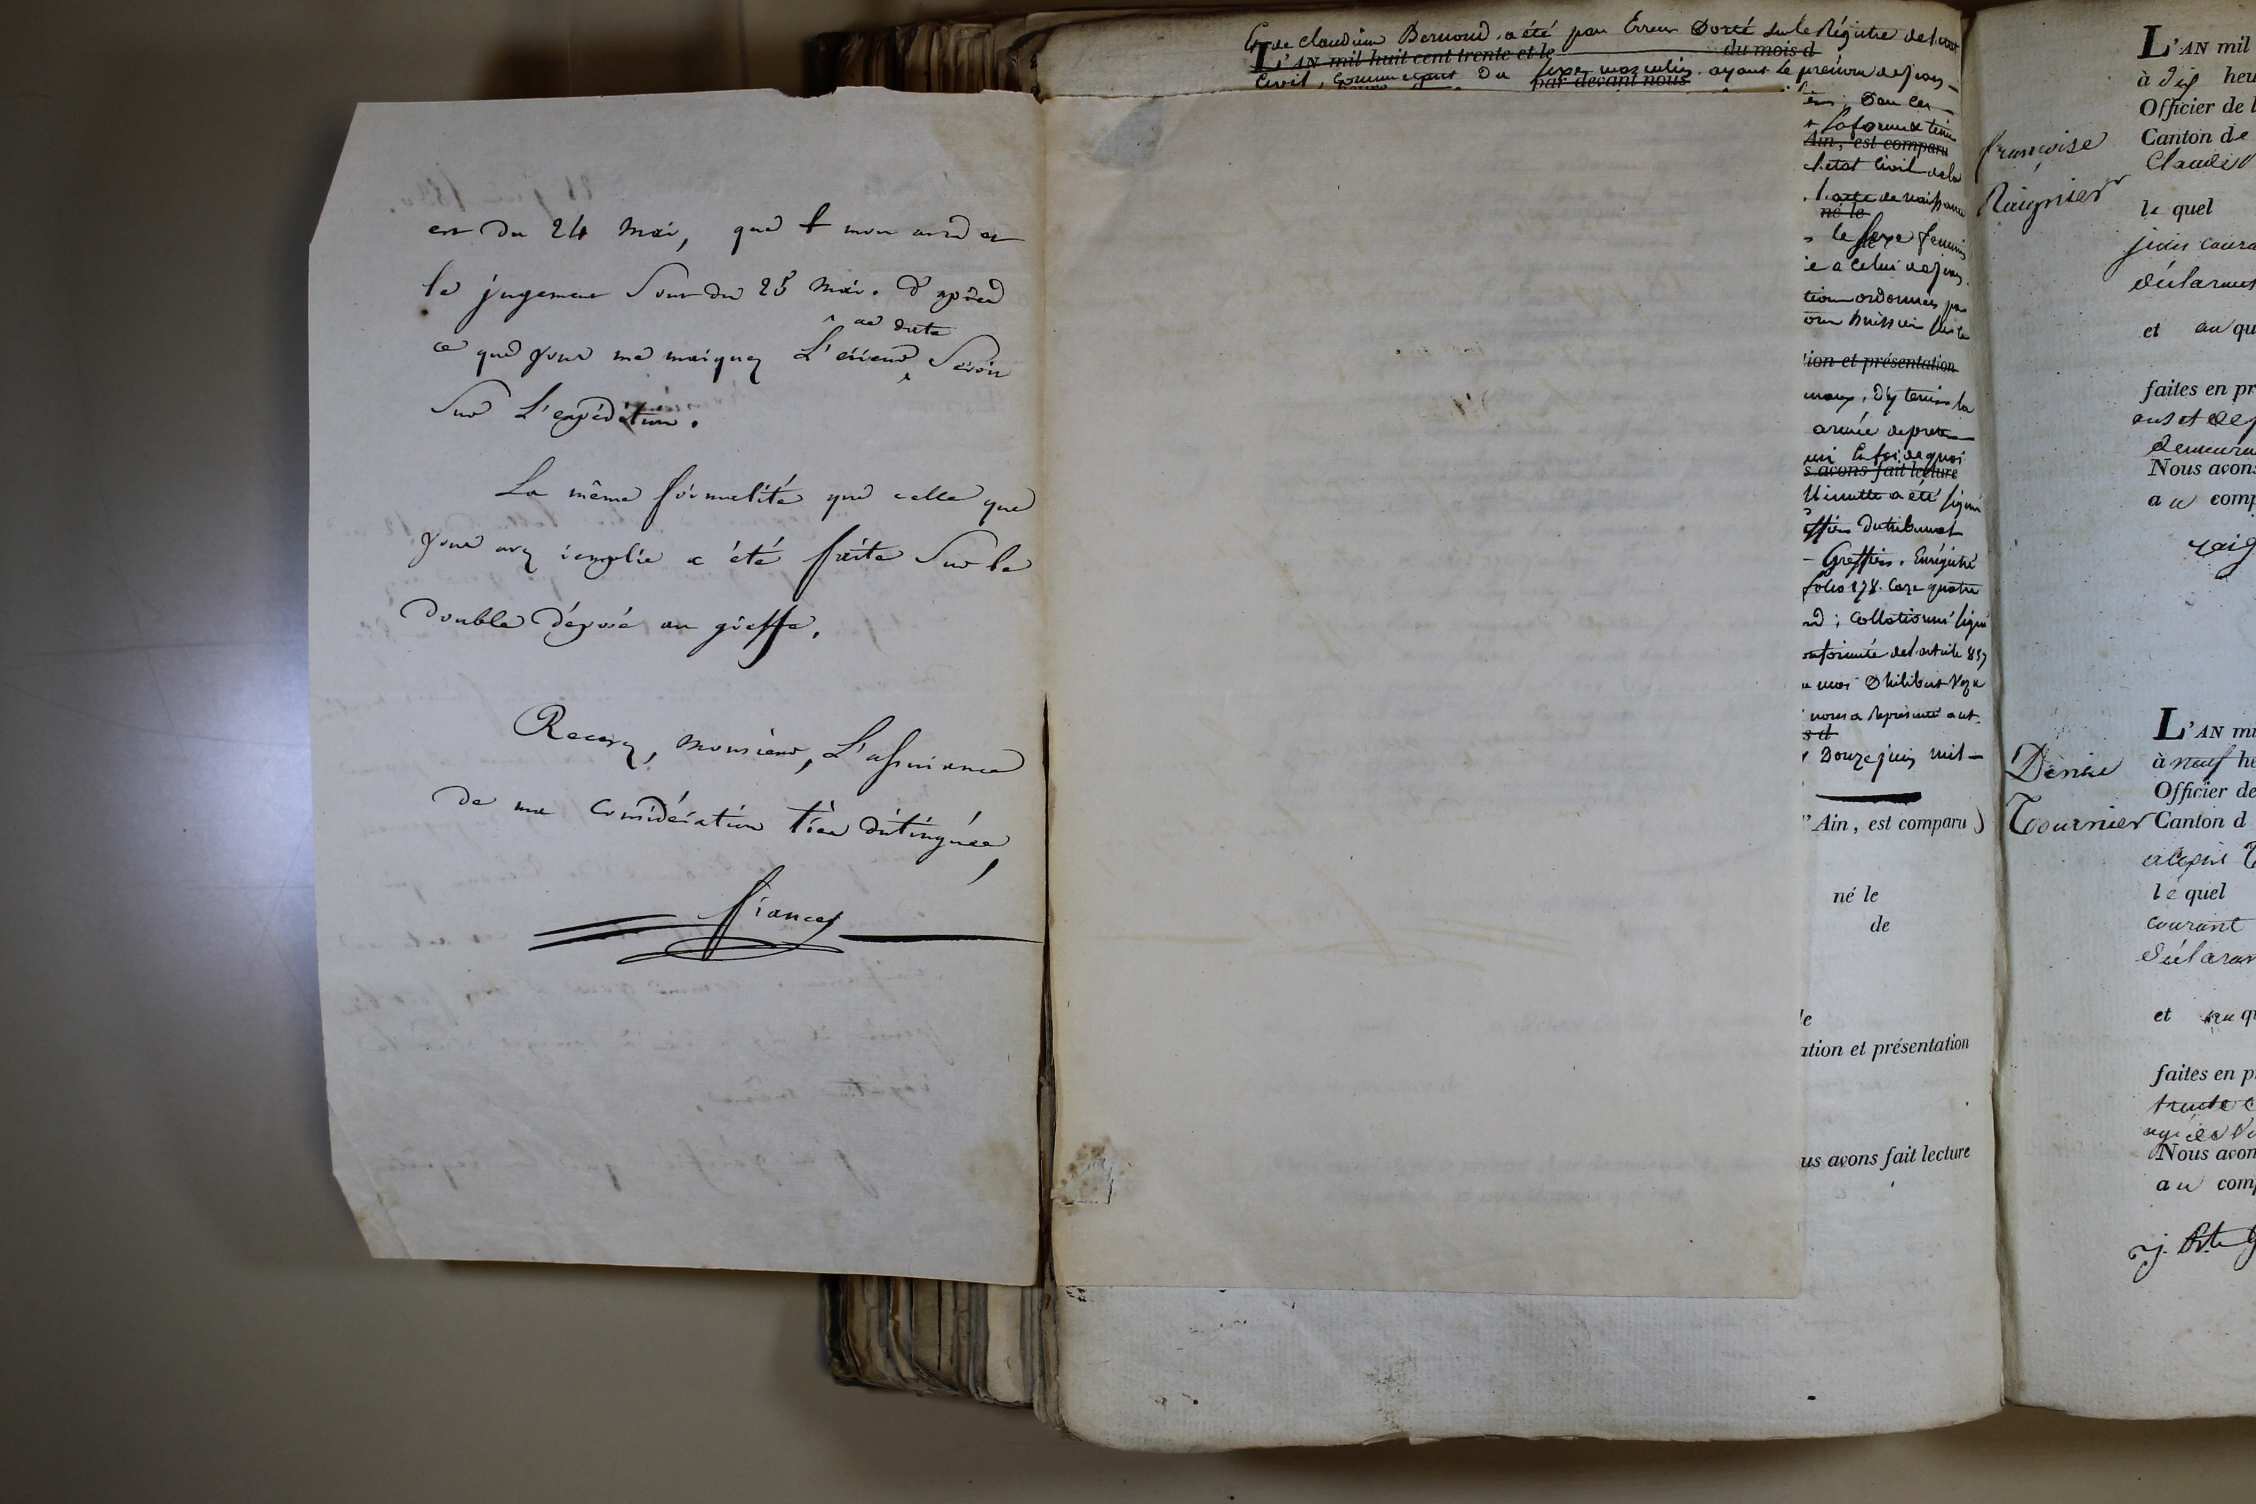 est du 24 mai, que mon avis et
le jugement sont du 25 mai. d'après
ce que vous me marquez L'erreur de date serait
sur L'expédition.
La même formalité que celle que
vous avez remplie a été faite sur le
double déposé au greffe.
Recevez, monsieur, L'assurance
de ma considération très distinguée,
frances
Et de Claudine Bernoud. a été par Erreur Porté sur le Régistre de l'état
L'AN mil huit cent trente et le du mois d
Civil, comme étant du sexe masculin. ayant le prénom de jean-
par devant nous
la forme et tenu
Ain, est comparu
l'etat civil de la
l'acte de naissance
né le
le sexe feminin
e a celui de jean
tion ordonnées par
ion et présentation
maux, d'y tenir la
armée de pret
en foi de quoi
s avons fait lecture
Minutte a été signé
effier du tribunal
- Greffier. Enrégistré
folio 178. Case quatre
; collationné signé
onformité de l'article 857
moi Philibert
nous a représenté
s d
Douze juin mil-
l'Ain, est comparu
né le
de
le
ation et présentation
us avons fait lecture
françoise
Raignier
L'AN mil
à dix heu
Officier de l
Canton de
Claude
le quel
juin coura
déclarant
et au qu
faites en pr
ans et de p
demeura
Nous avons
au comp
raig
Denise
Tournier
L'AN mi
à neuf he
Officier de
Canton d
le quel
courant
déclaran
et au qu
faites en p
trente
Nous avon
au comp